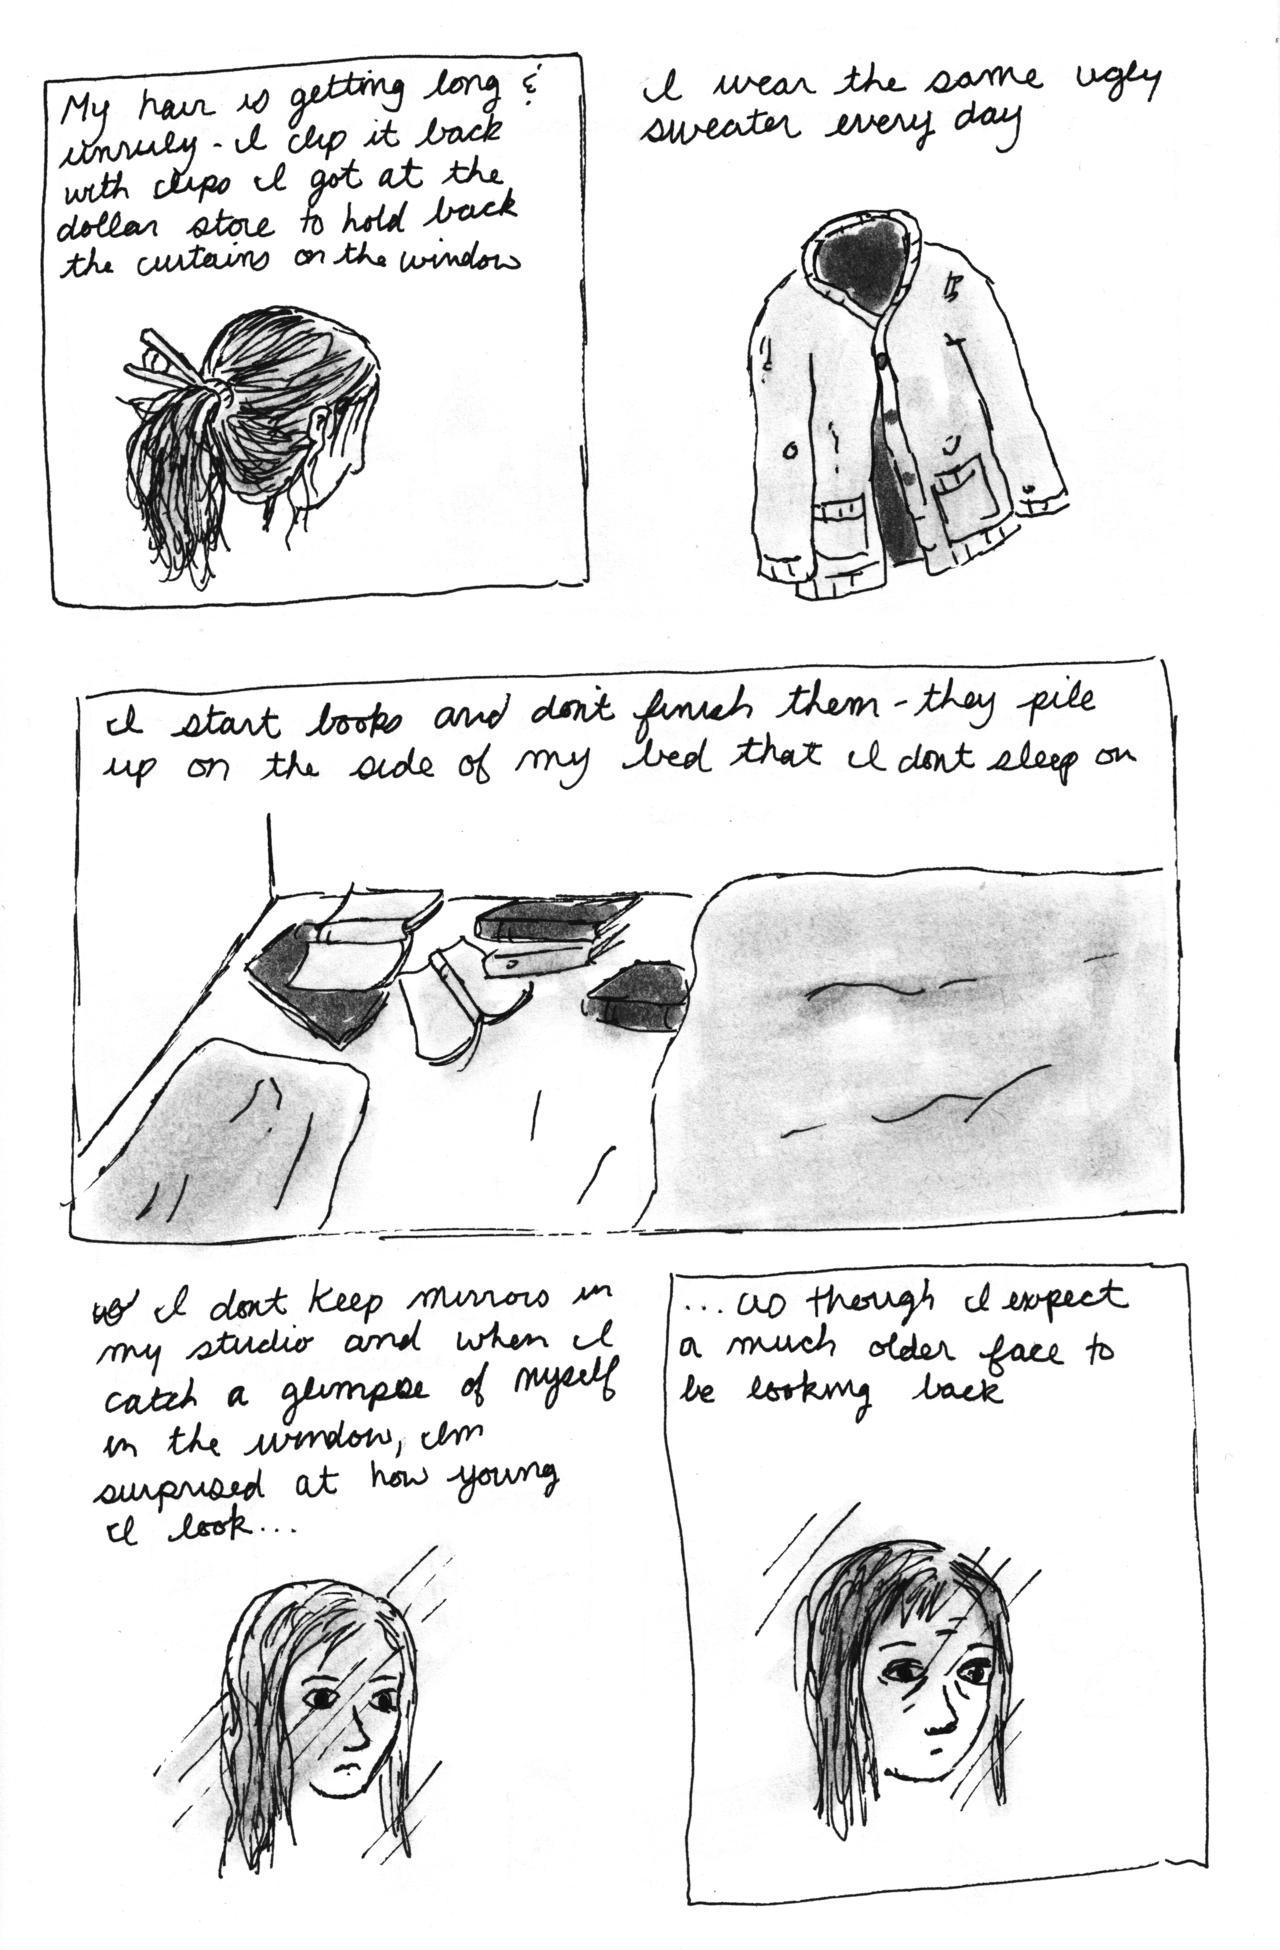 My hair is getting long &
unruly - I clip it back
with clips I got at the
dollar store to hold back
the curtains on the window
I wear the same ugly
sweater every day
I start books and don't finish them - they pile
up on the side of my bed that I dont sleep on
I dont keep mirrors in
my studio and when I
catch a glimpse of myself
in the window, Im
surprised at how young
I look...
... as though I expect
a much older face to
be looking back